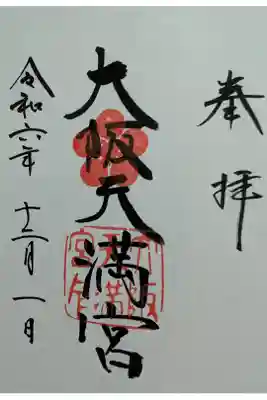 奉拝
大阪天満宮
令和六年 十二月一日